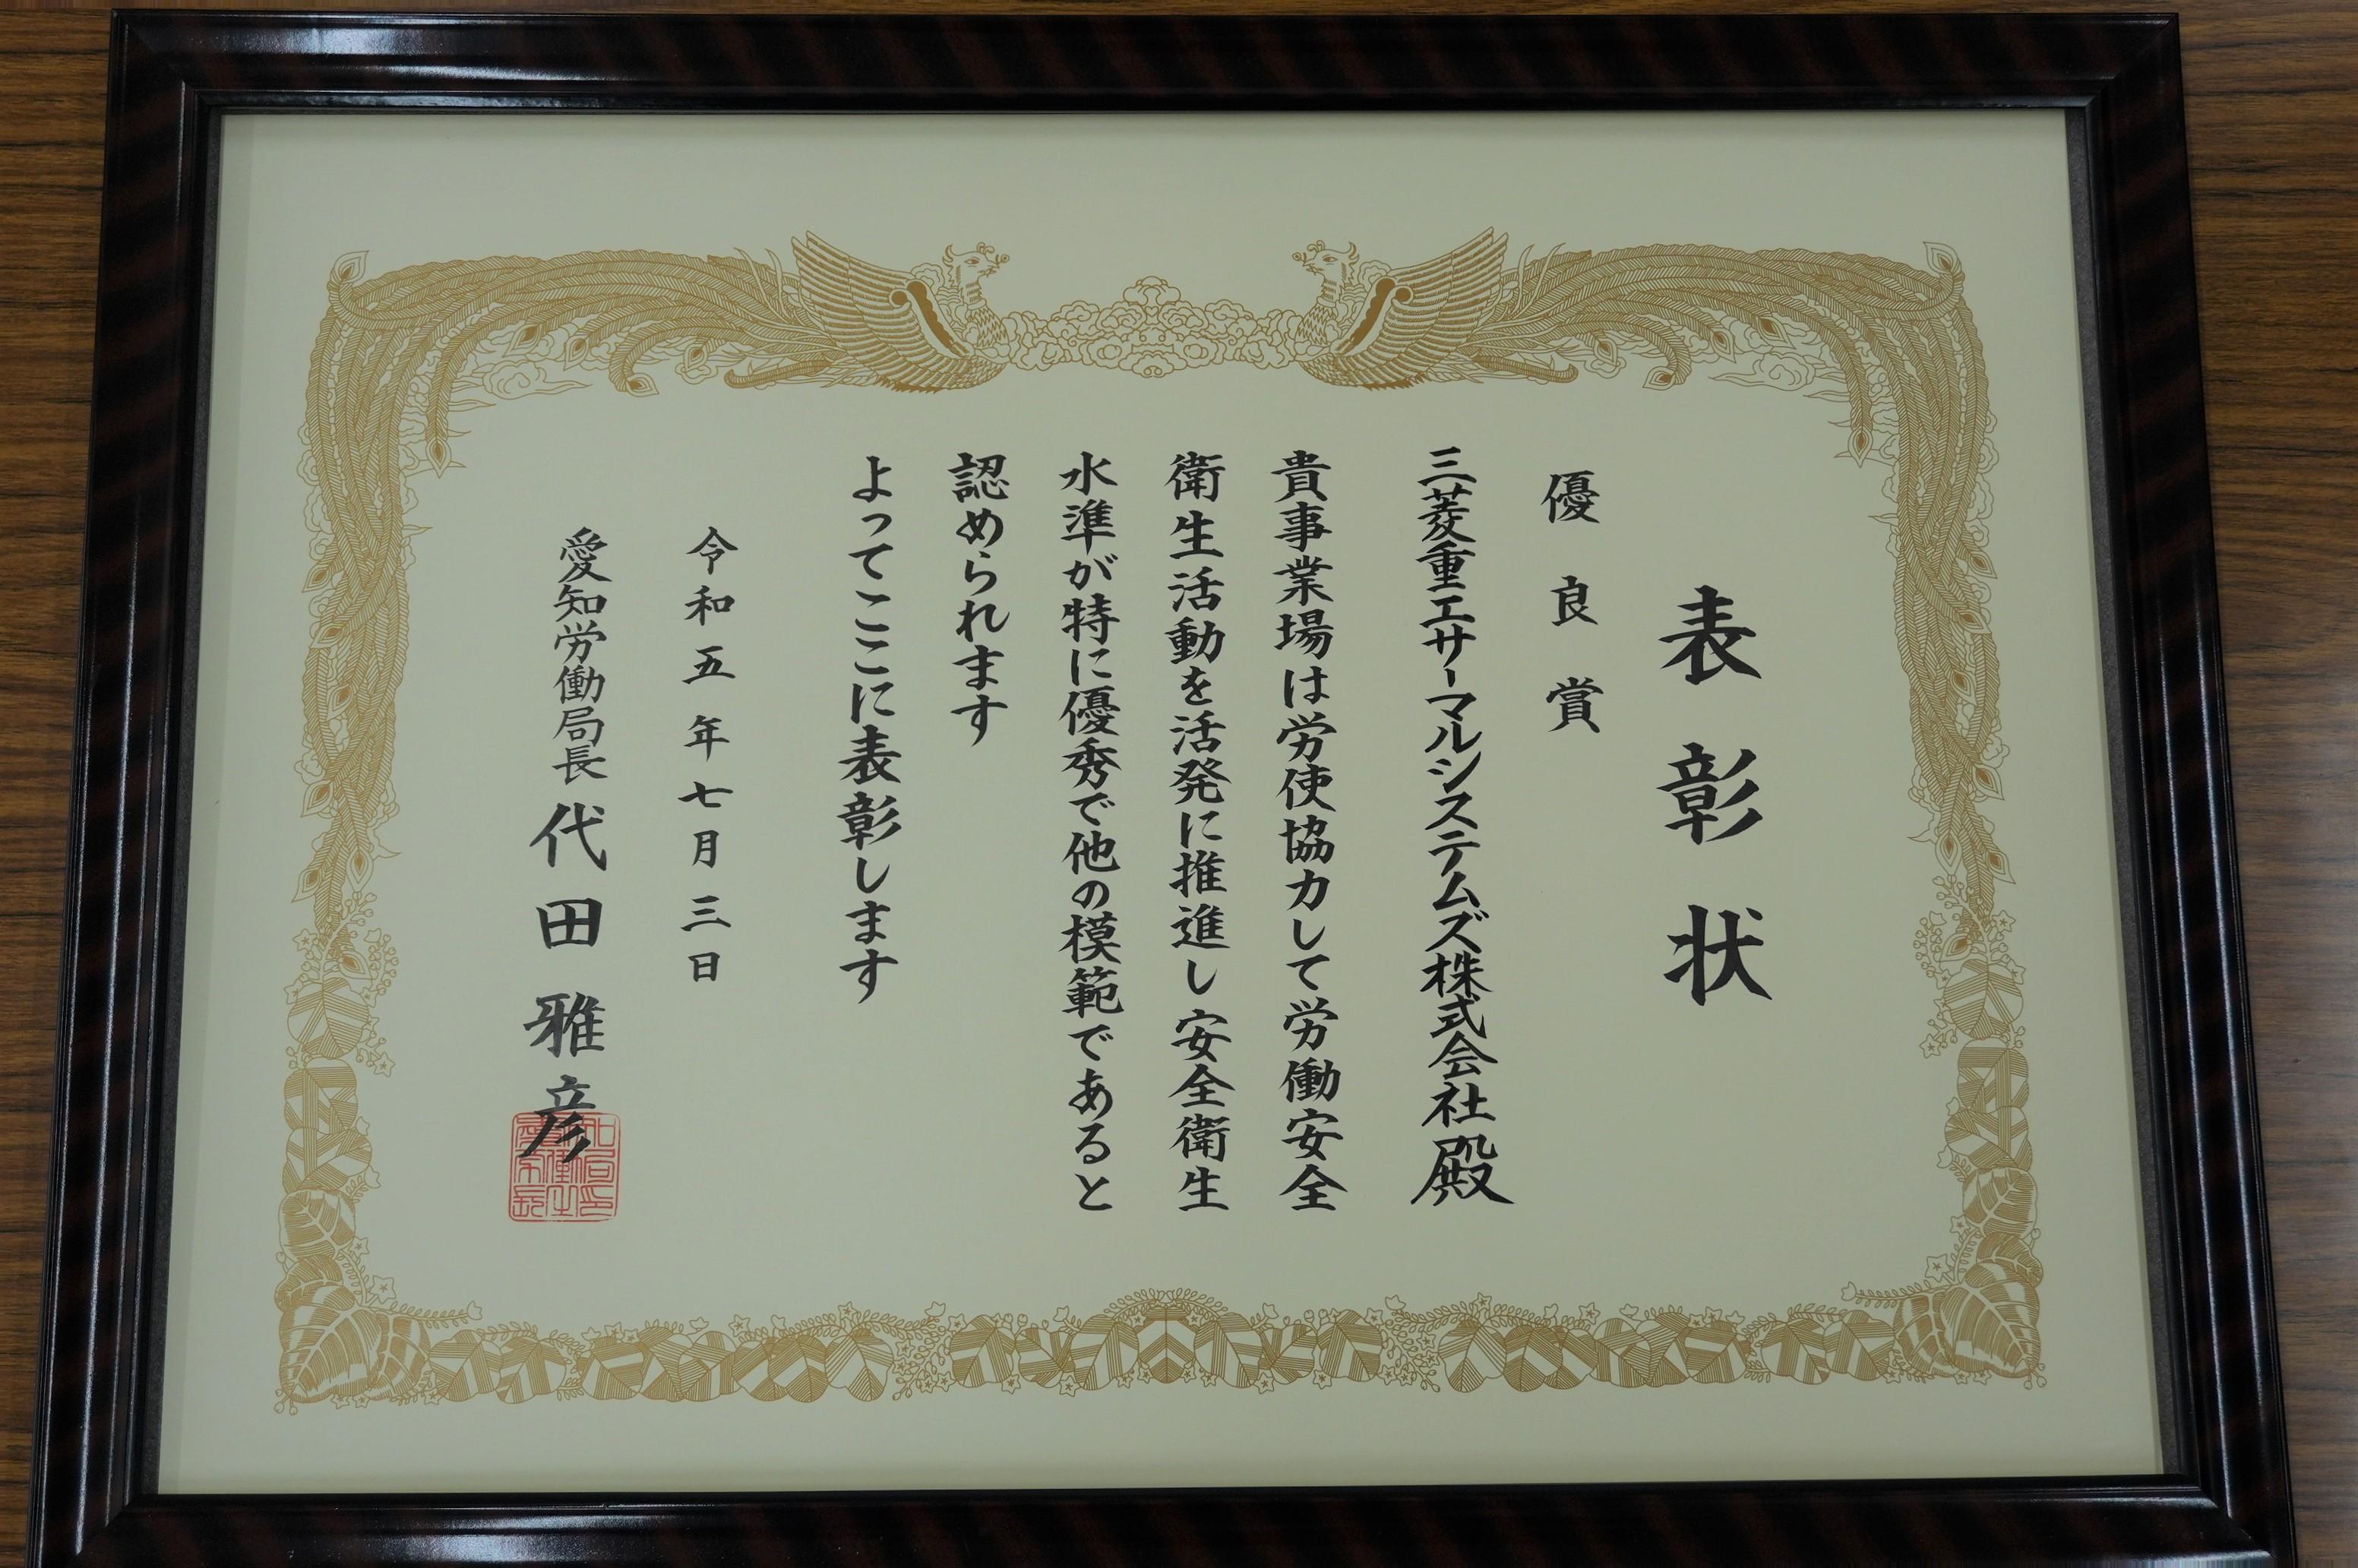 表彰状
優良賞
三菱重工サーマルシステムズ株式会社殿
貴事業場は労使協力して労働安全
衛生活動を活発に推進し安全衛生
水準が特に優秀で他の模範であると
認められます
よってここに表彰します
令和五年七月三日
愛知労働局長 代田雅彦